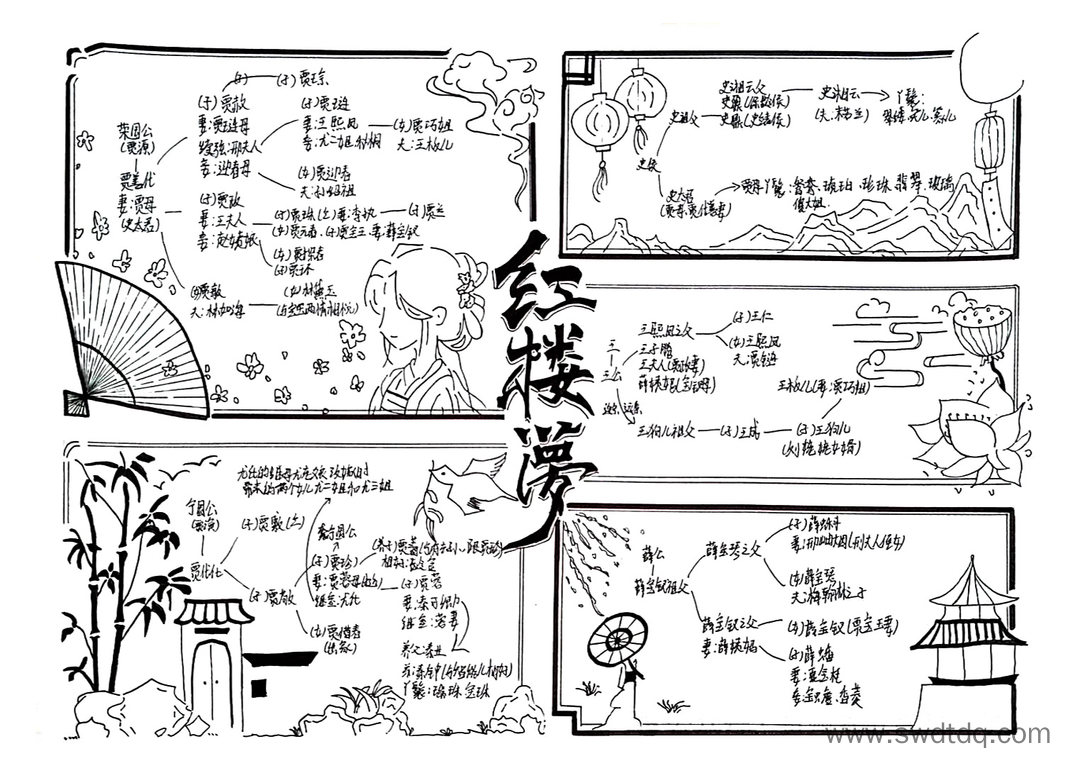 红楼梦
荣国公
(贾源)
贾善代
妻:贾母
(史太君)
(子)贾赦
妻:贾琏母
续弦:邢夫人
妾:迎春母
(子)贾琮
(子)贾琏
妻:王熙凤
妾:尤二姐 秋桐
(女)贾巧姐
夫:王板儿
(女)贾迎春
夫:孙绍祖
(子)贾政
妻:王夫人
妾:赵姨娘
(子)贾珠(亡)妻:李纨
(子)贾兰
(女)贾元春、(子)贾宝玉 妻:薛宝钗
(女)贾探春
(子)贾环
(女)贾敏
夫:林如海
(女)林黛玉
(与宝玉两情相悦)
史祖父
史湘云父
史鼐(保龄侯)
史鼎(史靖侯)
史湘云
(夫:若兰)
丫鬟:
翠缕、
史侯
史太君
贾母丫鬟:鸳鸯、琥珀、珍珠、翡翠、玻璃
傻大姐.
王公
近宗 远宗
王熙凤之父
王子腾
王夫人(贾政妻)
薛姨妈
(子)王仁
(女)王熙凤
夫:贾琏
王狗儿祖父
(子)王成
(子)王狗儿
(刘姥姥女婿)
王板儿(妻:贾巧姐)
宁国公
(贾演)
贾代化
(子)贾敷(亡)
(子)贾敬
尤氏的继母尤老娘 改嫁时
带来的两个女儿尤二姐和尤三姐
(子)贾珍
妻:贾蓉母(亡)
继室:尤氏
(女)贾惜春
(子)贾蓉
妻:秦可卿
养父:秦业
丫鬟:瑞珠 宝珠
薛公
薛宝钗祖父
薛宝琴之父
(子)薛蝌
妻:邢岫烟(邢夫人侄女)
(女)薛宝琴
夫:梅翰林之子
薛宝钗之父
妻:薛姨妈
(女)薛宝钗(贾宝玉妻)
(子)薛蟠
妻:夏金桂
妾:宝蟾、香菱
www.swdtdq.com